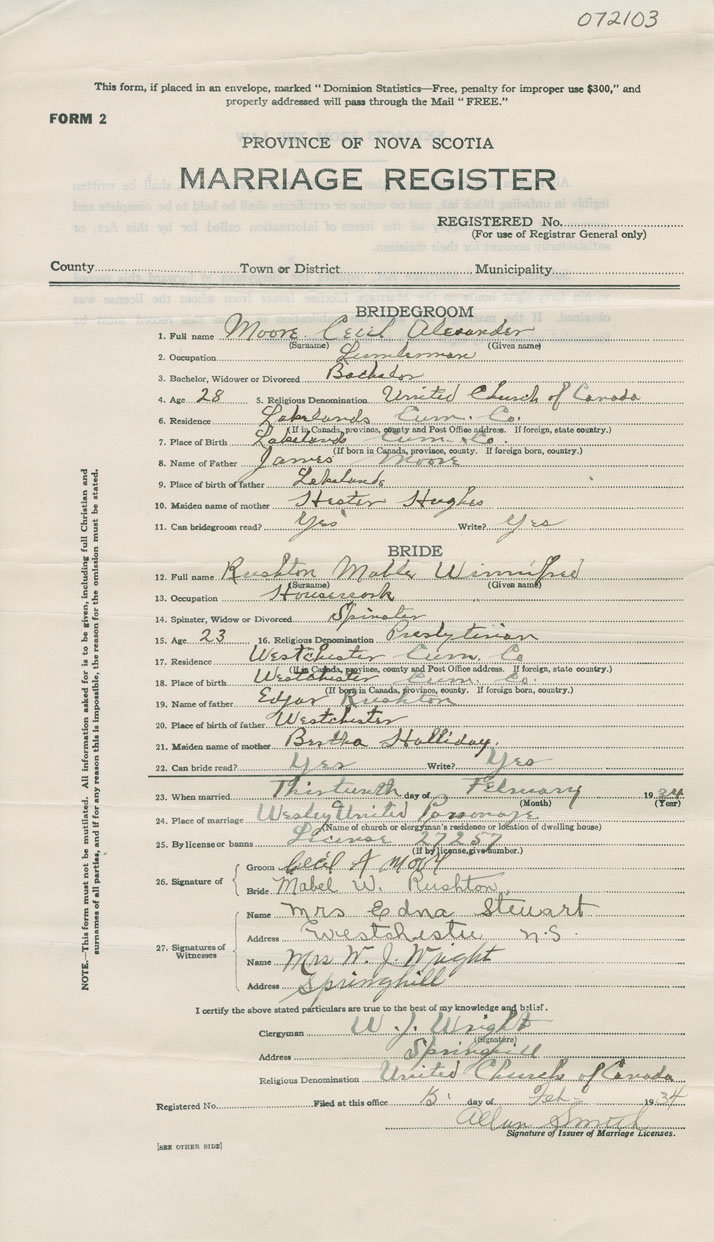 072103
This form, if placed in an envelope, marked "Dominion Statistics—Free, penalty for improper use $300," and
properly addressed will pass through the Mail "FREE."
FORM 2
PROVINCE OF NOVA SCOTIA
MARRIAGE REGISTER
REGISTERED No.
(For use of Registrar General only)
County Town or District Municipality
BRIDEGROOM
1. Full name Moore Cecil Alexander
(Surname) (Given name)
2. Occupation Lumberman
3. Bachelor, Widower or Divorced Bachelor
4. Age 28 5. Religious Denomination United Church of Canada
6. Residence Lakelands Cum. Co.
(If in Canada, province, county and Post Office address. If foreign, state country.)
7. Place of Birth Lakelands Cum. Co.
(If born in Canada, province, county. If foreign born, country.)
8. Name of Father James Moore
9. Place of birth of father Lakelands
10. Maiden name of mother Hester Hughes
11. Can bridegroom read? Yes Write? Yes
BRIDE
12. Full name Rushton Mable Winnifred
(Surname) (Given name)
13. Occupation Housework
14. Spinster, Widow or Divorced Spinster
15. Age 23 16. Religious Denomination Presbyterian
17. Residence Westchester Cum. Co
(If in Canada, province, county and Post Office address. If foreign, state country.)
18. Place of birth Westchester Cum. Co.
(If born in Canada, province, county. If foreign born, country.)
19. Name of father Edgar Rushton
20. Place of birth of father Westchester
21. Maiden name of mother Bertha Halliday.
22. Can bride read? Yes Write? Yes
23. When married Thirteenth day of February 1934
(Month) (Year)
24. Place of marriage Wesley United Parsonage
(Name of church or clergyman's residence or location of dwelling house)
25. By license or banns License 27257
(If by license, give number.)
26. Signature of
Groom Cecil A Moore
Bride Mabel W. Rushton
27. Signatures of Witnesses
Name Mrs Edna Stewart
Address Westchester N.S.
Name Mrs W. J. Wright
Address Springhill
I certify the above stated particulars are true to the best of my knowledge and belief.
Clergyman W. J. Wright
(Signature)
Address Springhill
Religious Denomination United Church of Canada
Registered No. Filed at this office 15 day of Feb 1934
Allan Smith
Signature of Issuer of Marriage Licenses.
[SEE OTHER SIDE]
NOTE.—This form must not be mutilated. All information asked for is to be given, including full Christian and
surnames of all parties, and if for any reason this is impossible, the reason for the omission must be stated.